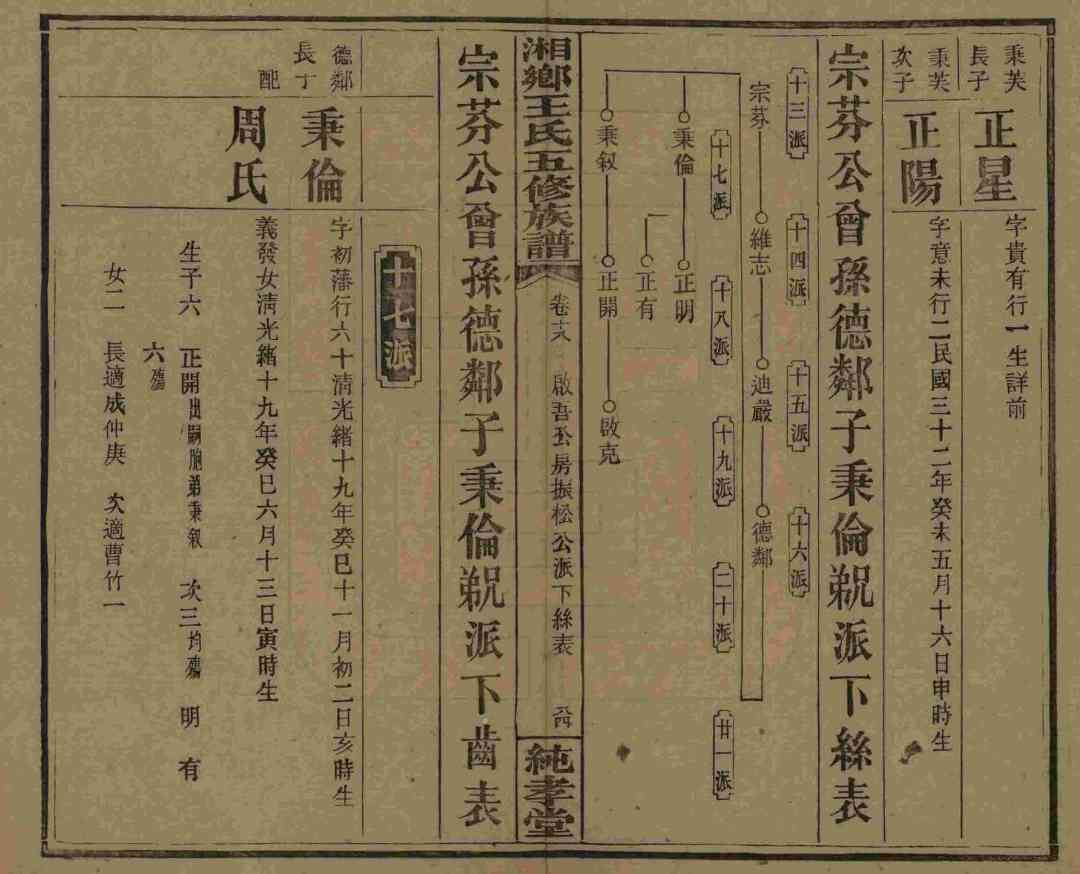 秉芙長子
正星
字貴有行一生詳前
秉芙次子
正陽
字意未行二民國三十二年癸未五月十六日申時生
宗芬公曾孫德鄰子秉倫叙派下絲表
十三派 十四派 十五派 十六派
宗芬 維志 迪嚴 德鄰
十七派 十八派 十九派 二十派 廿一派
秉倫 正明
正有
秉叙 正開 啟克
湘鄉王氏五修族譜
卷 啟吾公房振松公派下絲表
純孝堂
宗芬公曾孫德鄰子秉倫叙派下齒表
十七派
德鄰長丁
秉倫
字初藩行六十清光緒十九年癸巳十一月初二日亥時生
配
周氏
義發女清光緒十九年癸巳六月十三日寅時生
生子六 正開出嗣胞弟秉叙 次三均殤 明 有
六殤
女二 長適成仲庚 次適曹竹一